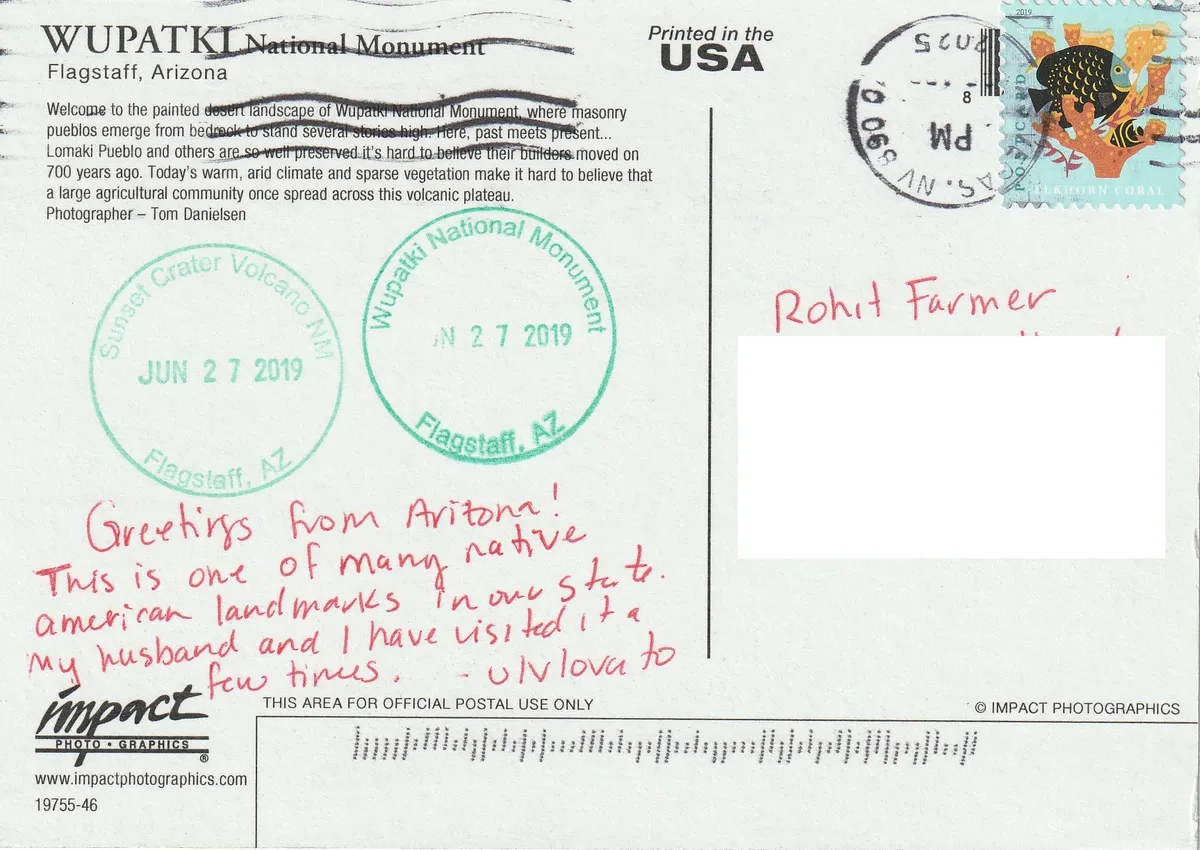 WUPATKI National Monument
Flagstaff, Arizona
Welcome to the painted desert landscape of Wupatki National Monument, where masonry
pueblos emerge from bedrock to stand several stories high. Here, past meets present...
Lomaki Pueblo and others are so well preserved it's hard to believe their builders moved on
700 years ago. Today's warm, arid climate and sparse vegetation make it hard to believe that
a large agricultural community once spread across this volcanic plateau.
Photographer – Tom Danielsen
Printed in the
USA
2019
POSTCARD
ELKHORN CORAL
2025
8
PM
AS. NV 890
Sunset Crater Volcano NM
JUN 27 2019
Flagstaff, AZ
Wupatki National Monument
N 27 2019
Flagstaff, AZ
Rohit Farmer
Greetings from Arizona!
This is one of many native
american landmarks in our state.
My husband and I have visited it a
few times. - u/Vlovato
impact
PHOTO • GRAPHICS ®
www.impactphotographics.com
19755-46
THIS AREA FOR OFFICIAL POSTAL USE ONLY
© IMPACT PHOTOGRAPHICS